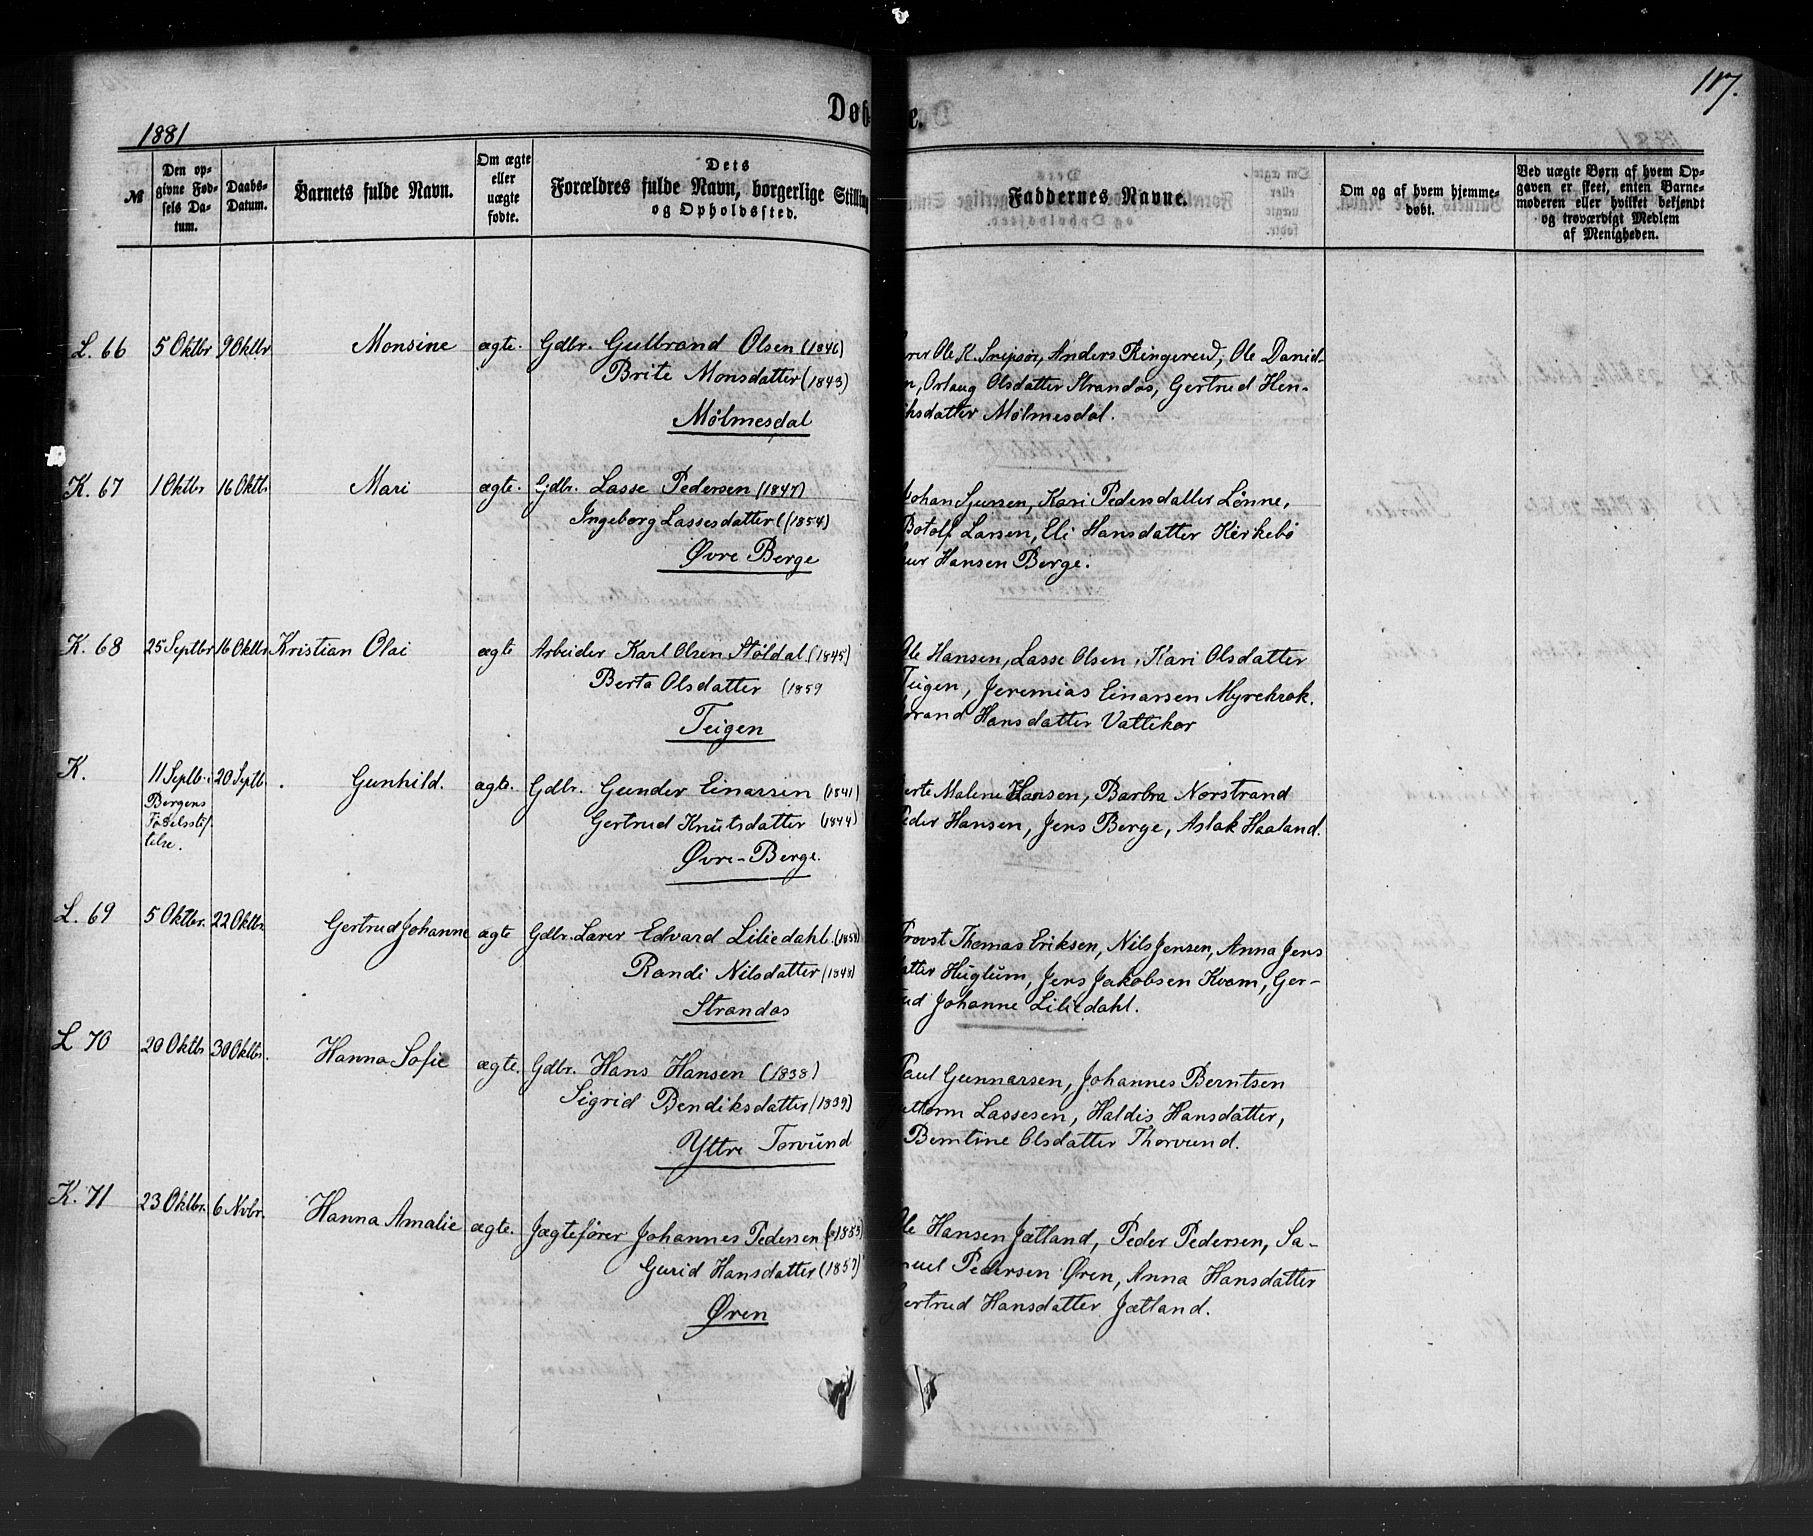 117.
Døbte.
1881
№
Den opgivne Fødsels Datum.
Daabs-Datum.
Barnets fulde Navn.
Om ægte eller uægte fødte.
Dets Forældres fulde Navn, borgerlige Stilling og Opholdssted.
Faddernes Navne.
Om og af hvem hjemmedøbt.
Ved uægte Børn af hvem Opgaven er skeet, enten Barnemoderen eller hvilket bekjendt og troværdigt Medlem af Menigheden.
L. 66 5 Oktbr 9 Oktbr Monsine ægte. Gdbr. Gulbrand Olsen (1846) Ole K. Snipsør, Anders Ringereid, Ole David-
Brite Monsdatter (1843) Orlaug Olsdatter Strandos, Gertrud Hen-
Mølmesdal riksdatter Mølmesdal.
K. 67 1 Oktbr 16 Oktb Mari ægte. Gdbr. Lasse Pedersen (1847) Johan Sjursen, Kari Pedersdatter Lønne,
Ingeborg Lassesdatter (1854) Botolf Larsen, Eli Hansdatter Kirkebø
Øvre Berge Hansen Berge.
K. 68 25 Septbr 16 Oktbr Kristian Olai ægte Arbeider Karl Olsen Støldal (1845) Ole Hansen, Lasse Olsen, Kari Olsdatter
Berta Olsdatter (1859 Teigen, Jeremias Einarsen Myrekrok.
Teigen Hansdatter Vattekar
K. 11 Septb. i 20 Septb. Gunhild. ægte. Gdbr. Gunder Einarsen (1841) Malene Hansen, Barbra Norstrand
Bergens Gertrud Knutsdatter (1844) Peder Hansen, Jens Berge, Aslak Haaland.
Fødselsstif
telse. Øvre-Berge.
L. 69 5 Oktbr. 22 Oktbr Gertrud Johanne ægte Gdbr. Lærer Edvard Liliedahl (1858) Provst Thomas Eriksen, Nils Jensen, Anna Jens
Randi Nilsdatter (1848) datter Huglum, Jens Jakobsen Kvam, Ger-
Strandos trud Johanne Liliedahl.
L 70 20 Oktbr 30 Oktbr. Hanna Sofie ægte. Gdbr. Hans Hansen (1838) Paul Gunnarsen, Johannes Berntsen
Sigrid Bendiksdatter (1839) Guttorm Lassesen, Haldis Hansdatter,
Yttre Torvund Berntine Olsdatter Thorvund.
K. 71 23 Oktbr. 6 Novbr. Hanna Amalie ægte. Jægtefører Johannes Pedersen (1853) Ole Hansen Jætland, Peder Pedersen, Sa-
Gurid Hansdatter (1857) muel Pedersen Øren, Anna Hansdatter
Øren Gertrud Hansdatter Jætland.